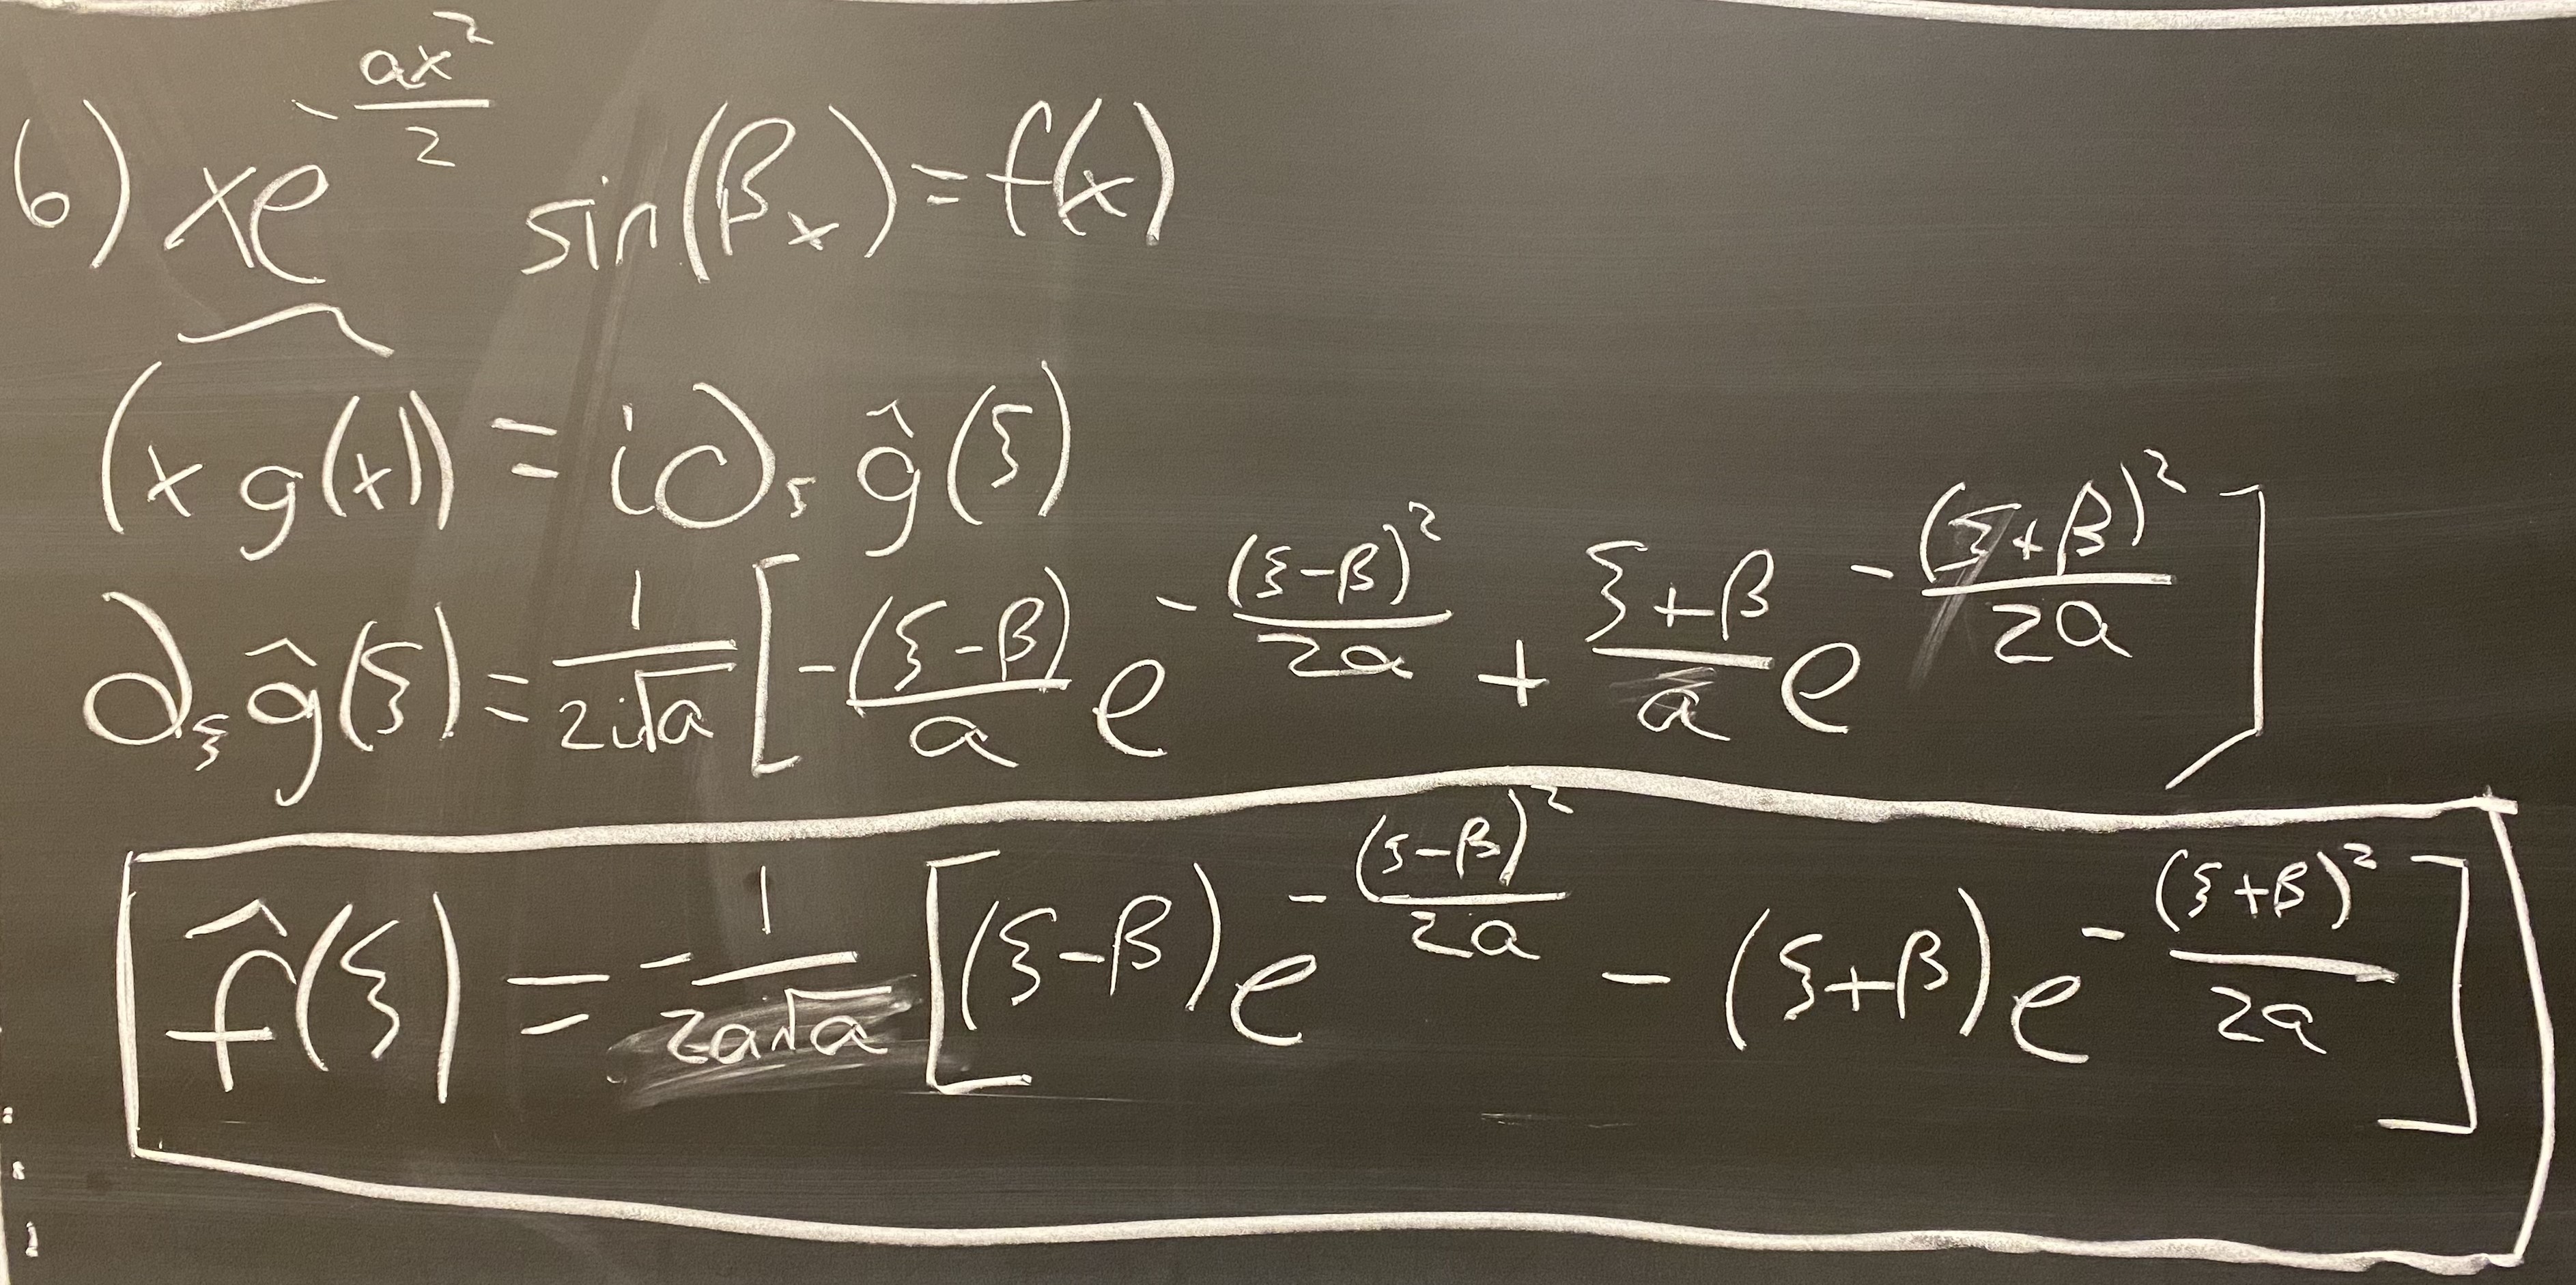 6) xe^{-\frac{ax^2}{2}} sin(βx) = f(x)
\widehat{(x g(x))} = i∂_ξ ĝ(ξ)
∂_ξ ĝ(ξ) = \frac{1}{2i√a} [ -\frac{(ξ-β)}{a} e^{-\frac{(ξ-β)^2}{2a}} + \frac{ξ+β}{a} e^{-\frac{(ξ+β)^2}{2a}} ]
\hat{f}(ξ) = -\frac{1}{2a√a} [ (ξ-β) e^{-\frac{(ξ-β)^2}{2a}} - (ξ+β) e^{-\frac{(ξ+β)^2}{2a}} ]